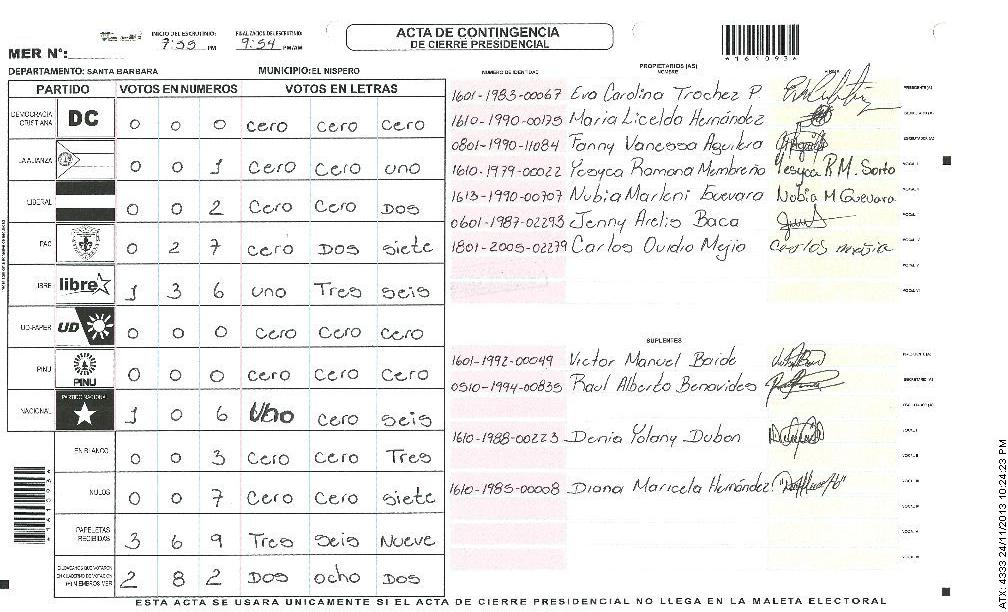 INICIO DEL ESCRUTINIO: FINALIZACION DEL ESCRUTINIO:
PM 9:54 PM/AM
ACTA DE CONTINGENCIA
DE CIERRE PRESIDENCIAL
*161093*
MER N°:
DEPARTAMENTO: SANTA BARBARA MUNICIPIO: EL NISPERO
PARTIDO VOTOS EN NUMEROS VOTOS EN LETRAS
DEMOCRACIA CRISTIANA DC 0 0 0 cero cero cero
LA ALIANZA 0 0 1 cero cero uno
LIBERAL 0 0 2 Cero Cero Dos
PAC 0 2 7 cero Dos siete
LIBRE libre 1 3 6 uno Tres seis
UD-FAPER UD 0 0 0 cero cero cero
PINU PINU 0 0 0 cero cero cero
NACIONAL PARTIDO NACIONAL 1 0 6 Uno cero seis
EN BLANCO 0 0 3 Cero Cero Tres
NULOS 0 0 7 Cero Cero siete
PAPELETAS RECIBIDAS 3 6 9 Tres seis Nueve
CIUDADANOS QUE VOTARON EN CUADERNO DE VOTACION (+) MIEMBROS MER 2 8 2 Dos ocho Dos
NUMERO DE IDENTIDAD PROPIETARIOS (AS) NOMBRE FIRMA
1601-1983-00067 Eva Carolina Trochez P. PRESIDENTE(A)
1610-1990-00175 Maria Licelda Hernández SECRETARIO (A)
0801-1990-11084 Fanny Vanessa Aguilera ESCRUTADOR (A)
1610-1979-00022 Yesyca Ramona Membreño Yesyca R M. Sorto VOCAL I
1613-1990-00707 Nubia Marleni Guevara Nubia M Guevara VOCAL II
0601-1987-02293 Jenny Arelis Baca
1801-2005-02279 Carlos Ovidio Mejia carlos mejia
SUPLENTES
1601-1992-00049 Victor Manuel Baide PRESIDENTE (A)
0510-1994-00835 Raul Alberto Benavides SECRETARIO (A)
ESCRUTADOR (A)
1610-1988-00223 Denia Yolany Dubon
1610-1985-00008 Diana Maricela Hernández
ESTA ACTA SE USARA UNICAMENTE SI EL ACTA DE CIERRE PRESIDENCIAL NO LLEGA EN LA MALETA ELECTORAL
4333 24/11/2013 10:24:23 PM